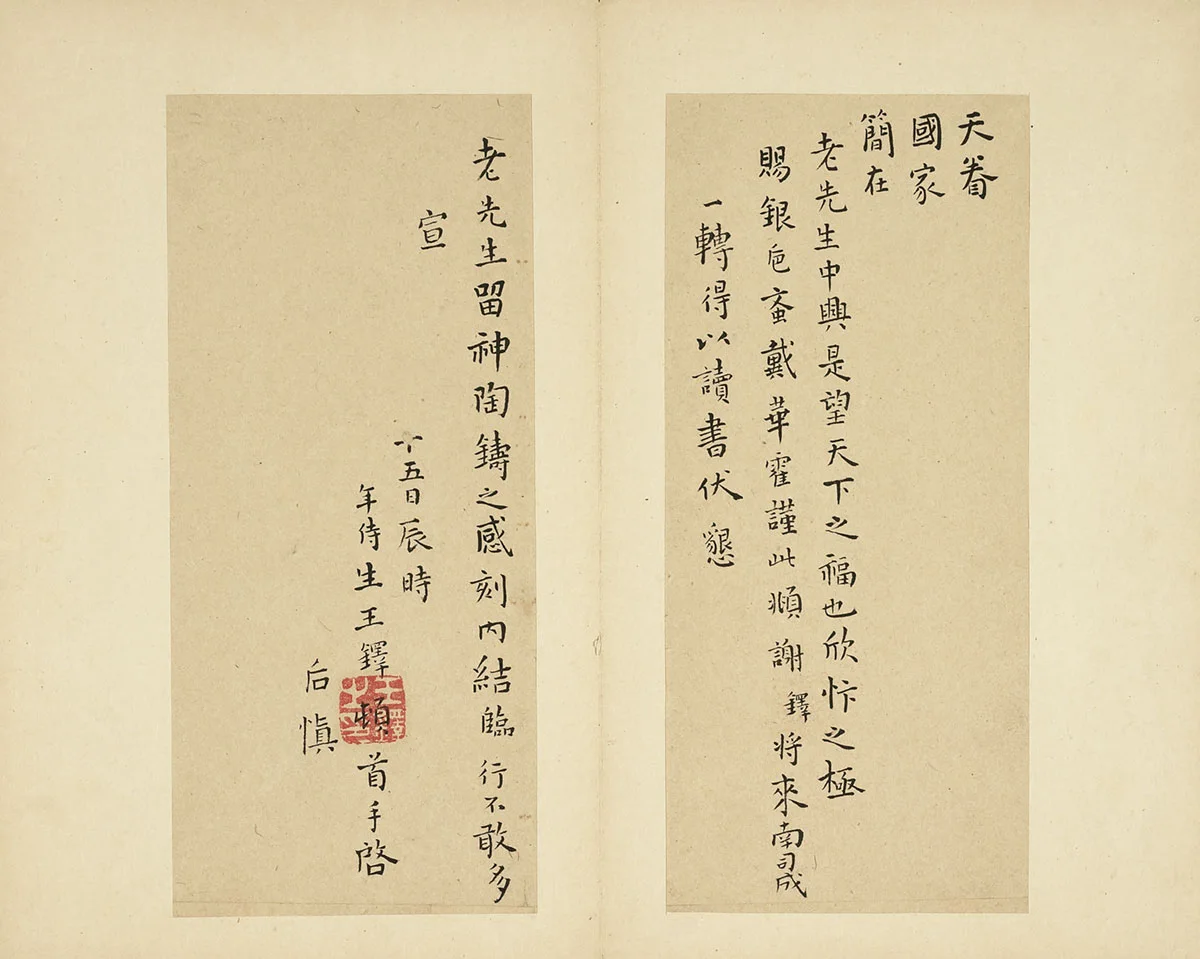 天眷
國家
簡在
老先生中興是望天下之福也欣忭之極
賜銀巵蚉戴華霍謹此順謝鐸將來南司成
一轉得以讀書伏懇
老先生留神陶鑄之感刻內結臨行不敢多
宣
十五日辰時
年侍生王鐸頓首手啓
后慎